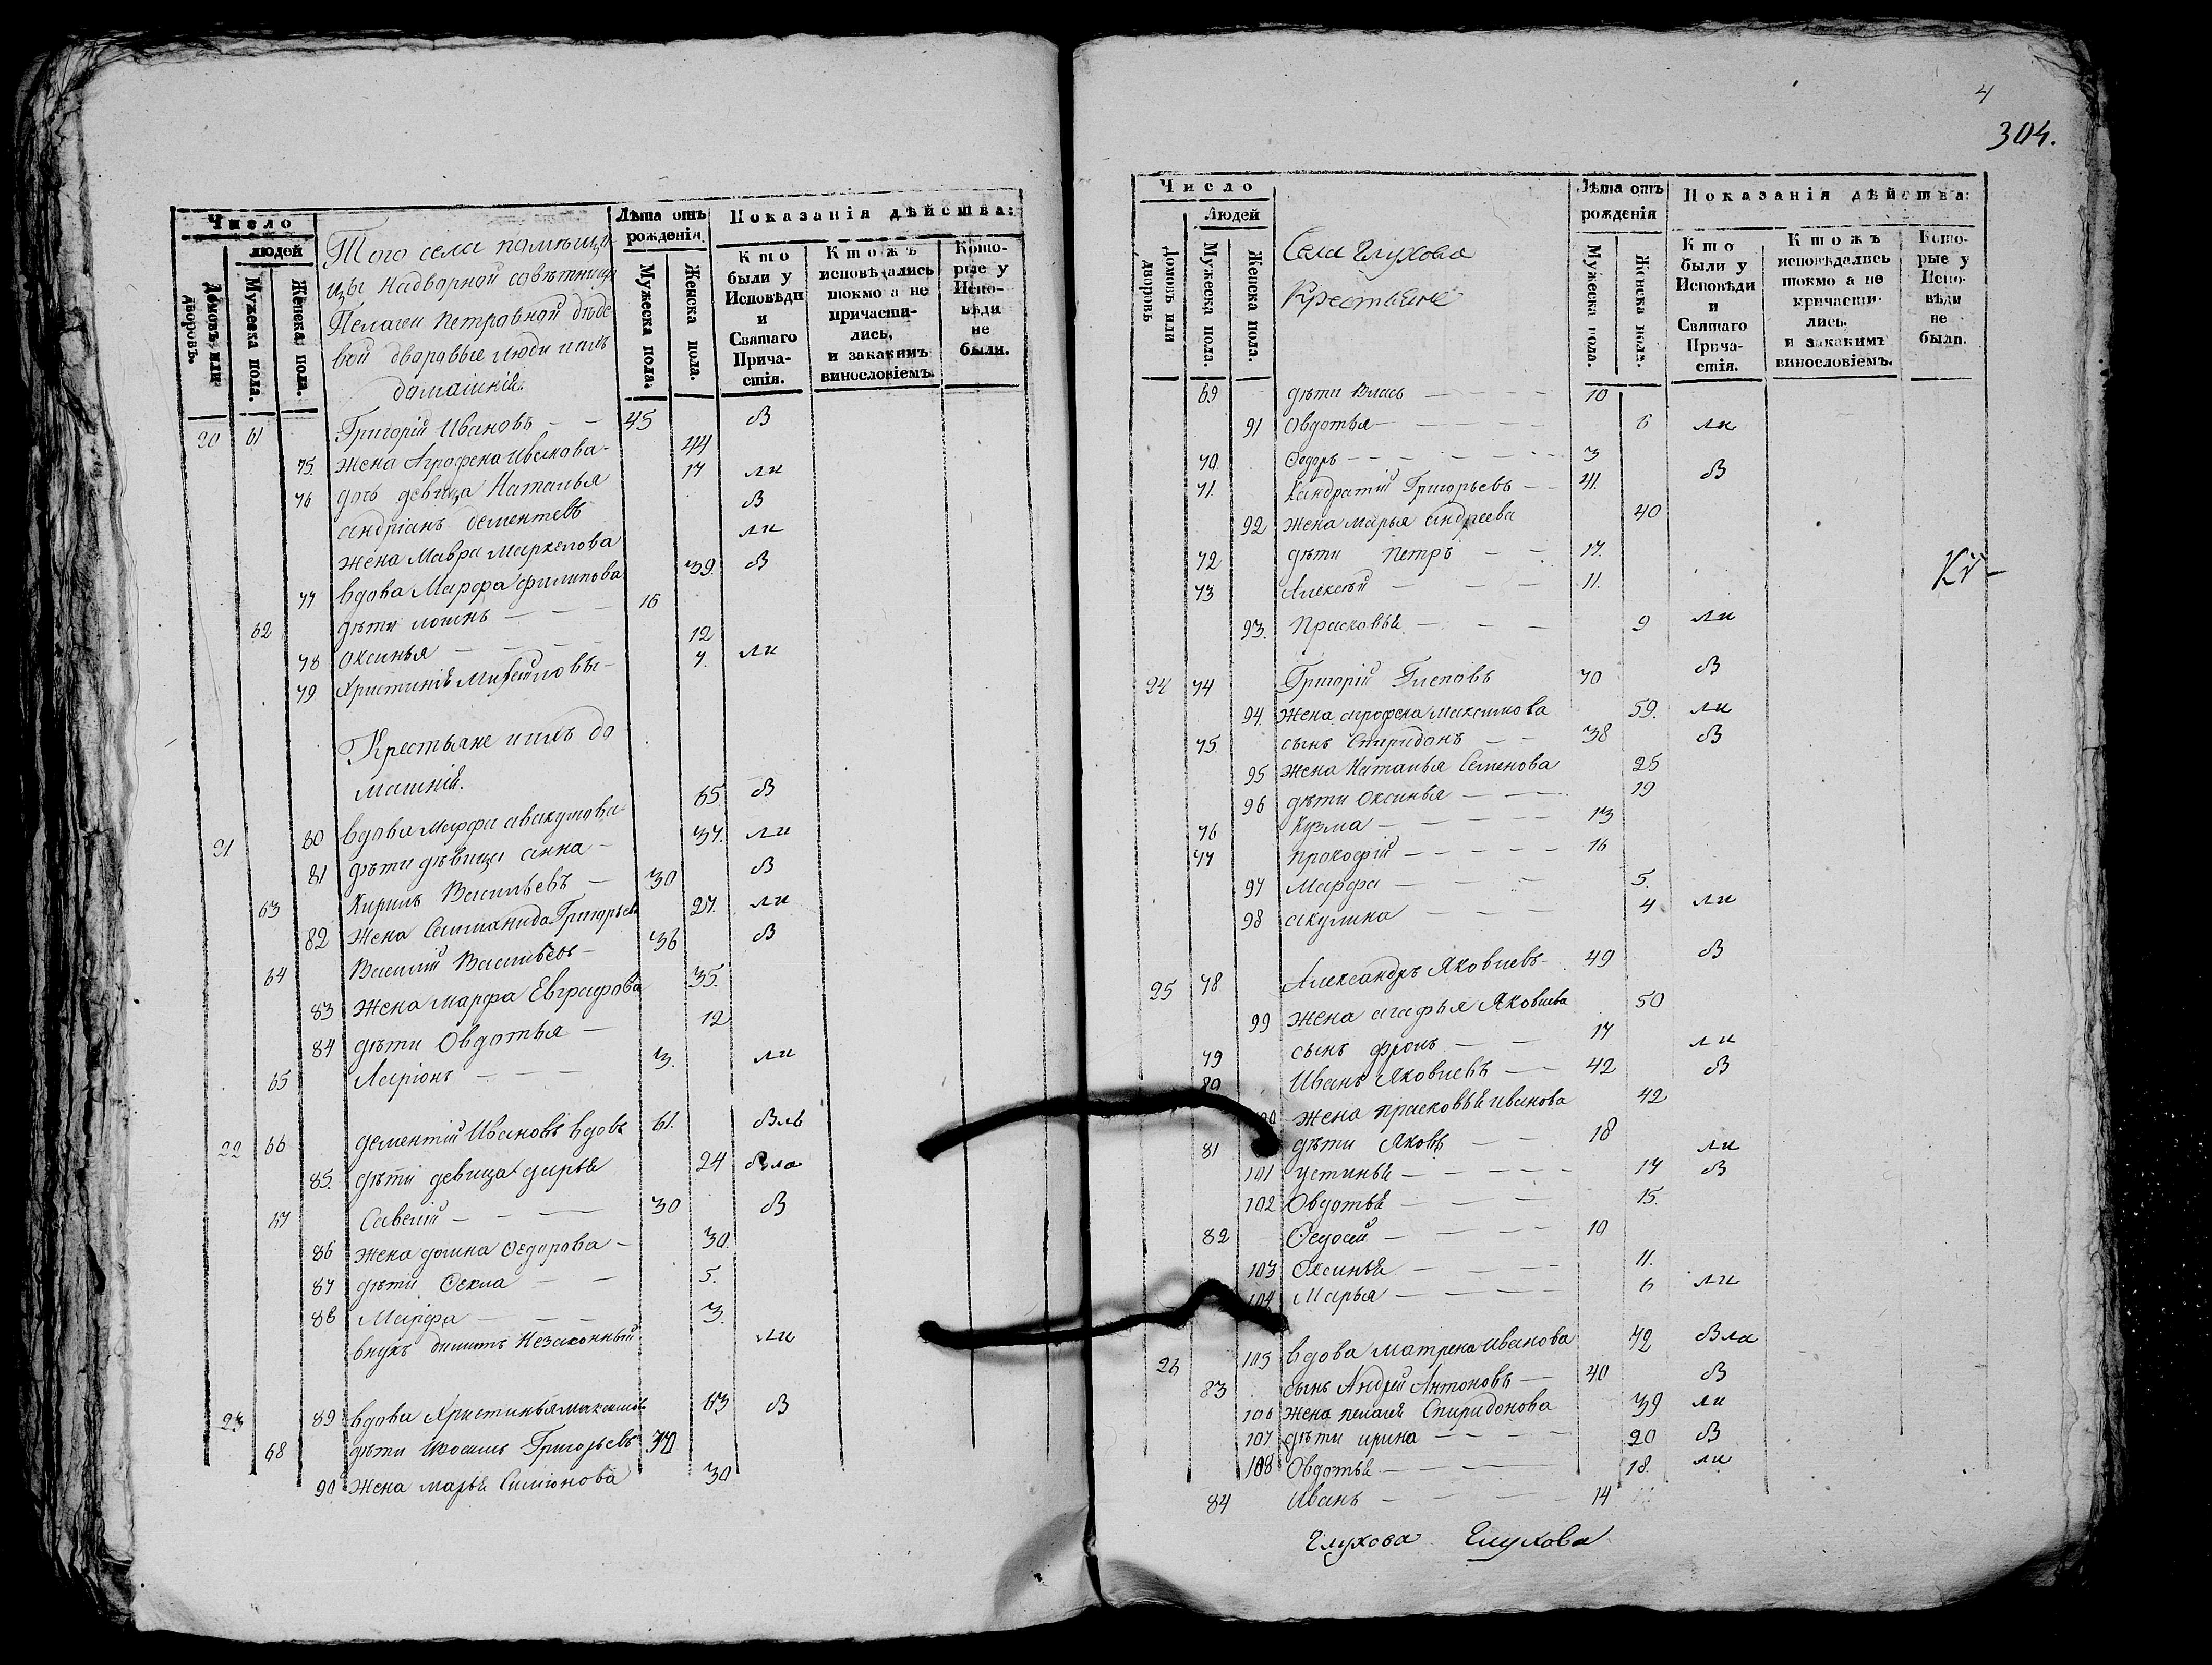 Число
людей
Домовъ или дворовъ.
Мужеска пола.
Женска пола.
Того села помѣщи
цы Надворной совѣтницы
Пелагеи Петровной
вой дворовые люди и ихъ
домашнія.
Лѣта отъ рожденія
Мужеска пола.
Женска пола.
Показанія дѣйства:
Кто были у Исповѣди и Святаго Причастія.
Ктожъ исповѣдались токмо а не причастились, и закакимъ винословіемъ.
Которые у Исповѣди не были.
20 61 Григорій Ивановъ — — 45 В
75. жена Агрофена Иванова - 44
76 дочь девица Наталья 17 ли
андріанъ дементевъ В
жена Мавра Маркелова ли
77 вдова Марфа Филипова 39. В
62 дѣти — — — 16
78 Оксинья — — — 12
79 Христинія 7. ли
Крестьяне и ихъ до
машнія.
21 80 вдова Марфа авакумова 65 В
81 дѣти дѣвица анна — 37. ли
63 Кирилъ Васильевъ — 30 В
82 Жена Григорьева 27. ли
64 Василій Васильевъ — 36 В
83 Жена марфа Евграфова 35.
84 дѣти Овдотья — 12
65 Ларіонъ — — — 3. ли
22 66 дементій Ивановъ вдовъ 61. Влъ
85. дѣти девица дарья 24 Вла
67 Савелій — — — 30 В
86 жена домна Ѳедорова — 30.
87 дѣти Ѳекла — — 5.
88 Марфа — — — 3.
внукъ Незаконный ли
23 89 вдова Христинья максимова 63 В
68 дѣти Григорьевъ 30
90 Жена марья Симіонова 30
4
304.
Число
Людей
Домовъ или дворовъ
Мужеска пола.
Женска пола.
Села Глухова
Крестьяне
Лѣта отъ рожденія
Мужеска пола.
Женска пола.
Показанія дѣйства:
Кто были у Исповѣди и Святаго Причастія.
Ктожъ исповѣдались токмо а не причастились, и закакимъ винословіемъ.
Которые у Исповѣди не были.
69 дѣти Власъ — — — — 10
91 Овдотья — — — — 6 ли
70 Ѳедоръ — — — — 3
71. Кандратій Григорьевъ — — 41. В
92 жена марья андреева 40
72 дѣти Петръ — — 17.
73 Алексѣй — — — 11.
93. Прасковья — — — 9 ли
24 74 Григорій 70 В
94. Жена агрофена максимова 59. ли
75. сынъ Спиридонъ — — 38 В
95 жена Наталья Семенова 25
96 дѣти Оксинья — — — 19
76 Кузма — — — — 13
77 прокофій — — — — 16
97 Марфа — — — 5.
98 акулина — — — 4 ли
25 78 Александръ Яковлевъ — 49 В
99 жена агафья Яковлева 50
79 сынъ фролъ — — 17 ли
80 Иванъ Яковлевъ — — 42 В
100 жена прасковья иванова 42
81 дѣти Яковъ — — 18 ли
101 устинья — — — — 17 В
102 Овдотья — — — 15.
82 Ѳедосей — — — — 10
103 Оксинья — — — — 11.
104 Марья — — — — 6 ли
26 105 вдова матрена иванова 72 Вла
83 сынъ Андрей Антоновъ — 40 В
106 жена пелагея Спиридонова 39 ли
107 дѣти ирина — — — — 20 В
108 Овдотья — — — 18. ли
84 Иванъ — — — — 14
Глухова Глухова